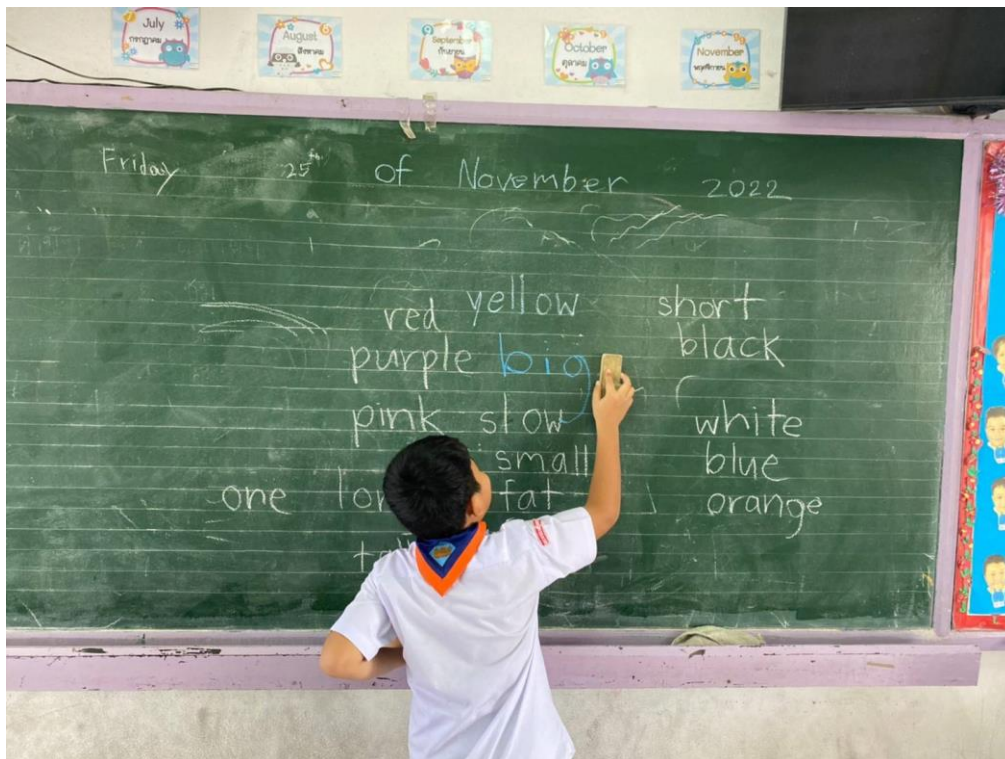 July
กรกฎาคม
August
สิงหาคม
September
กันยายน
October
ตุลาคม
November
พฤศจิกายน
Friday 25th of November 2022
red yellow short
purple big black
pink slow white
small blue
one fat orange